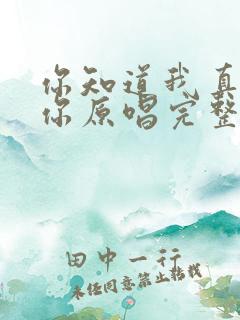 你知道我真
你原唱完整
田中一行
未经同意禁止转载